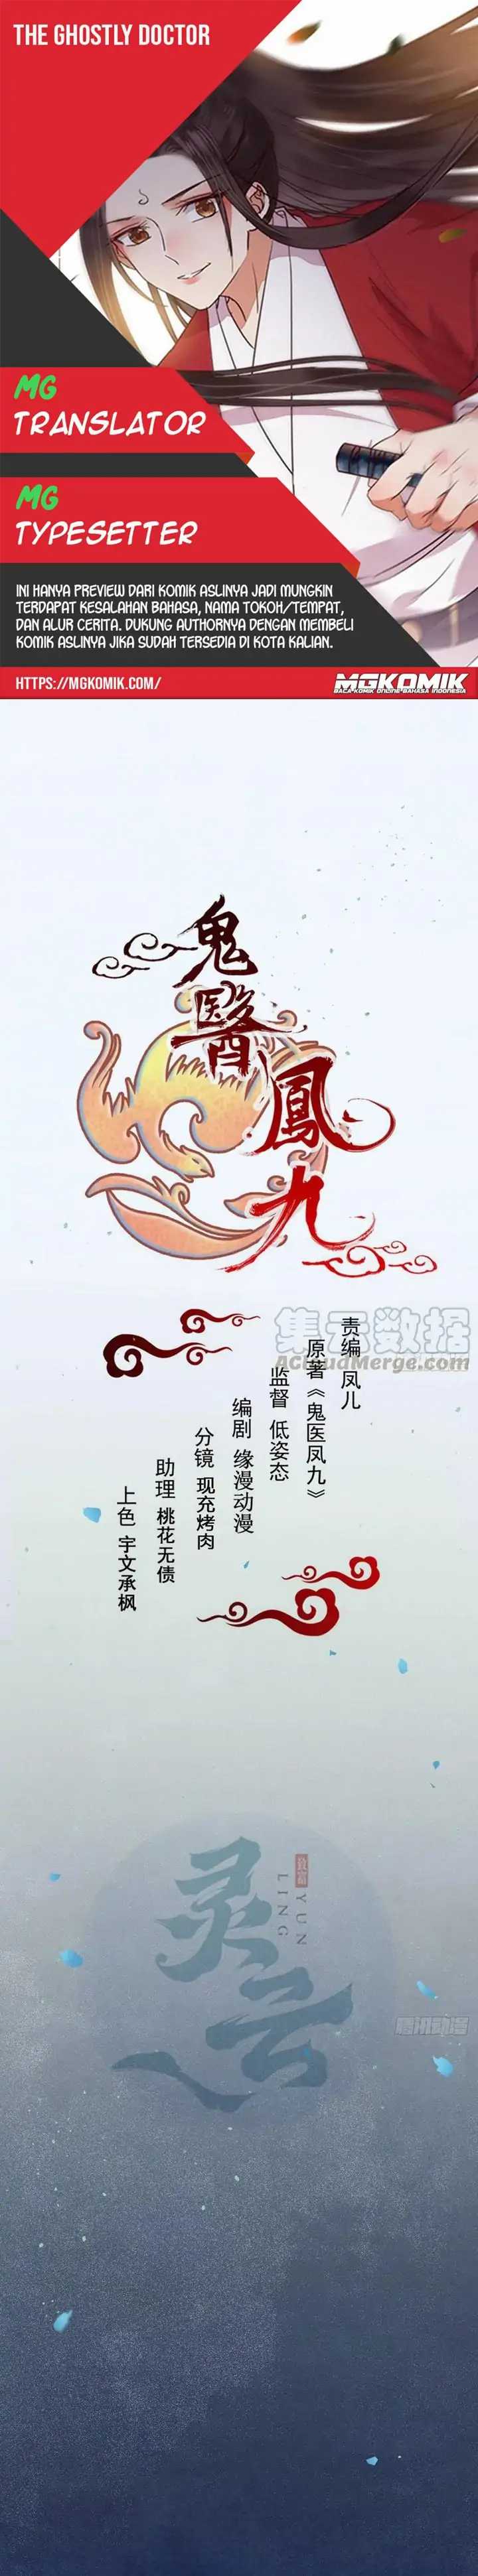 THE GHOSTLY DOCTOR
MG
TRANSLATOR
MG
TYPESETTER
INI HANYA PREVIEW DARI KOMIK ASLINYA JADI MUNGKIN
TERDAPAT KESALAHAN BAHASA, NAMA TOKOH/TEMPAT,
DAN ALUR CERITA. DUKUNG AUTHORNYA DENGAN MEMBELI
KOMIK ASLINYA JIKA SUDAH TERSEDIA DI KOTA KALIAN.
HTTPS://MGKOMIK.COM/
MGKOMIK
BACA KOMIK ONLINE BAHASA INDONESIA
鬼醫鳳九
集云数据
AcloudMerge.com
责编 凤儿
原著《鬼医凤九》
监督 低姿态
编剧 缘漫动漫
分镜 现充烤肉
助理 桃花无债
上色 宇文承枫
灵云
YUN
LING
腾讯动漫